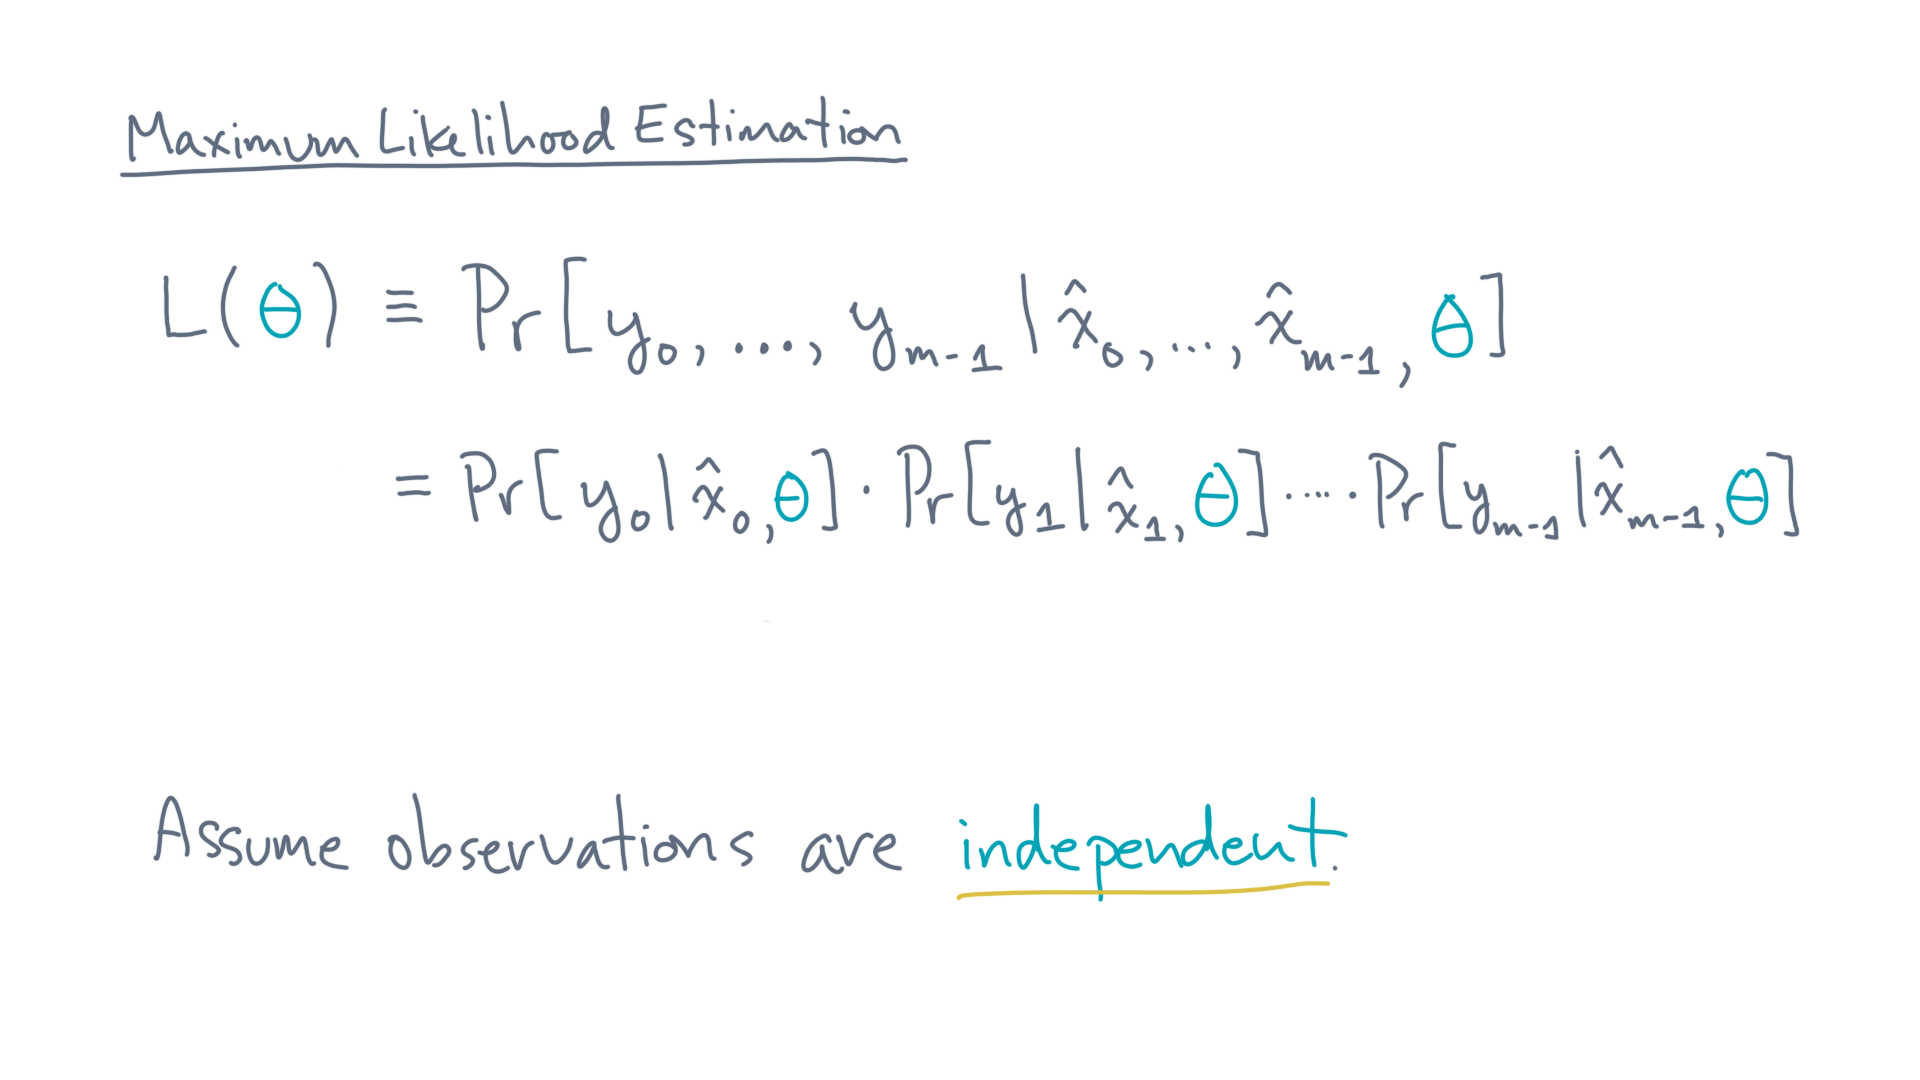 Maximum Likelihood Estimation
L(θ) ≡ Pr[y₀, ..., yₘ₋₁ | x̂₀, ..., x̂ₘ₋₁, θ]
= Pr[y₀ | x̂₀, θ] · Pr[y₁ | x̂₁, θ] · ... · Pr[yₘ₋₁ | x̂ₘ₋₁, θ]
Assume observations are independent.